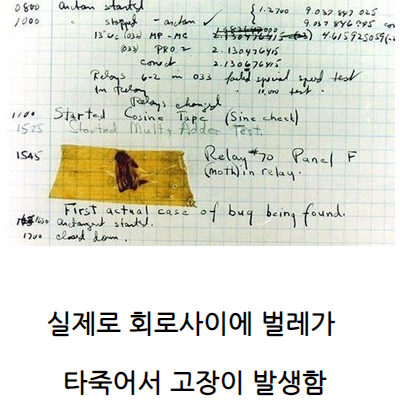 0800 Antan started
1000 " stopped - antan ✓ { 1.2700 9.037 847 025
9.037 846 995 conect
13"uc (032) MP - MC 4.615925059(-2)
(033) PRO 2 2.130476415
conect 2.130676415
Relays 6-2 in 033 failed special speed test
in Relay " 11.000 test.
Relays changed
1100 Started Cosine Tape (Sine check)
1525 Started Multy Adder Test.
1545 Relay #70 Panel F
(moth) in relay.
First actual case of bug being found.
1630 antangent started.
1700 closed down.
실제로 회로사이에 벌레가
타죽어서 고장이 발생함